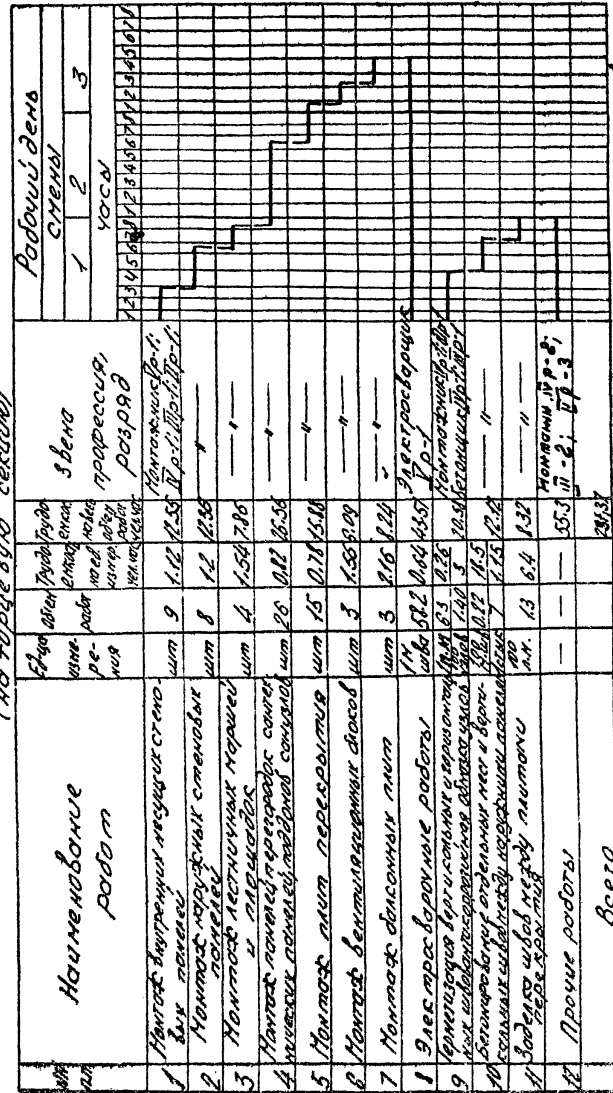 (на торцевую секцию)
№№ п.п.
Наименование работ
Ед-ца измерения
Объем работ
Трудоемкость на ед. измер. чел.час
Трудоемкость на объем работ чел.час
Звено профессия, разряд
Рабочий день
смены
1 2 3
часы
1 2 3 4 5 6 7 8 1 2 3 4 5 6 7 8 1 2 3 4 5 6 7 8
1 Монтаж внутренних несущих стеновых панелей шт 9 1.12 12.55 Монтажник Vр-1; IVр-1; IIIр-1; IIр-1
2 Монтаж наружных стеновых панелей шт 8 1.2 12.55 — " —
3 Монтаж лестничных маршей и площадок шт 4 1.54 7.86 — " —
4 Монтаж панелей перегородок сантехнических панелей, поддонов санузлов шт 26 0.82 26.56 — " —
5 Монтаж плит перекрытия шт 15 0.78 15.88 — " —
6 Монтаж вентиляционных блоков шт 3 1.56 6.09 — " —
7 Монтаж балконных плит шт 3 2.16 8.24 — " —
8 Электросварочные работы 1м шва 58.2 0.64 43.51 Электросварщик Vр-1
9 Герметизация вертикальных и горизонтальных швов антикоррозийная обмазка узлов 6.3 0.26 1.40 3 20.51 Монтажник
10 Бетонирование отдельных мест и вертикальных швов между наружными панелями 0.22 18.5 7 1.15 12.12 — " —
11 Заделка швов между плитами перекрытия 100 п.м. 1.3 6.4 8.32 — " —
12 Прочие работы — — — 55.3 IVр-2; III-2; IIр-3
Всего